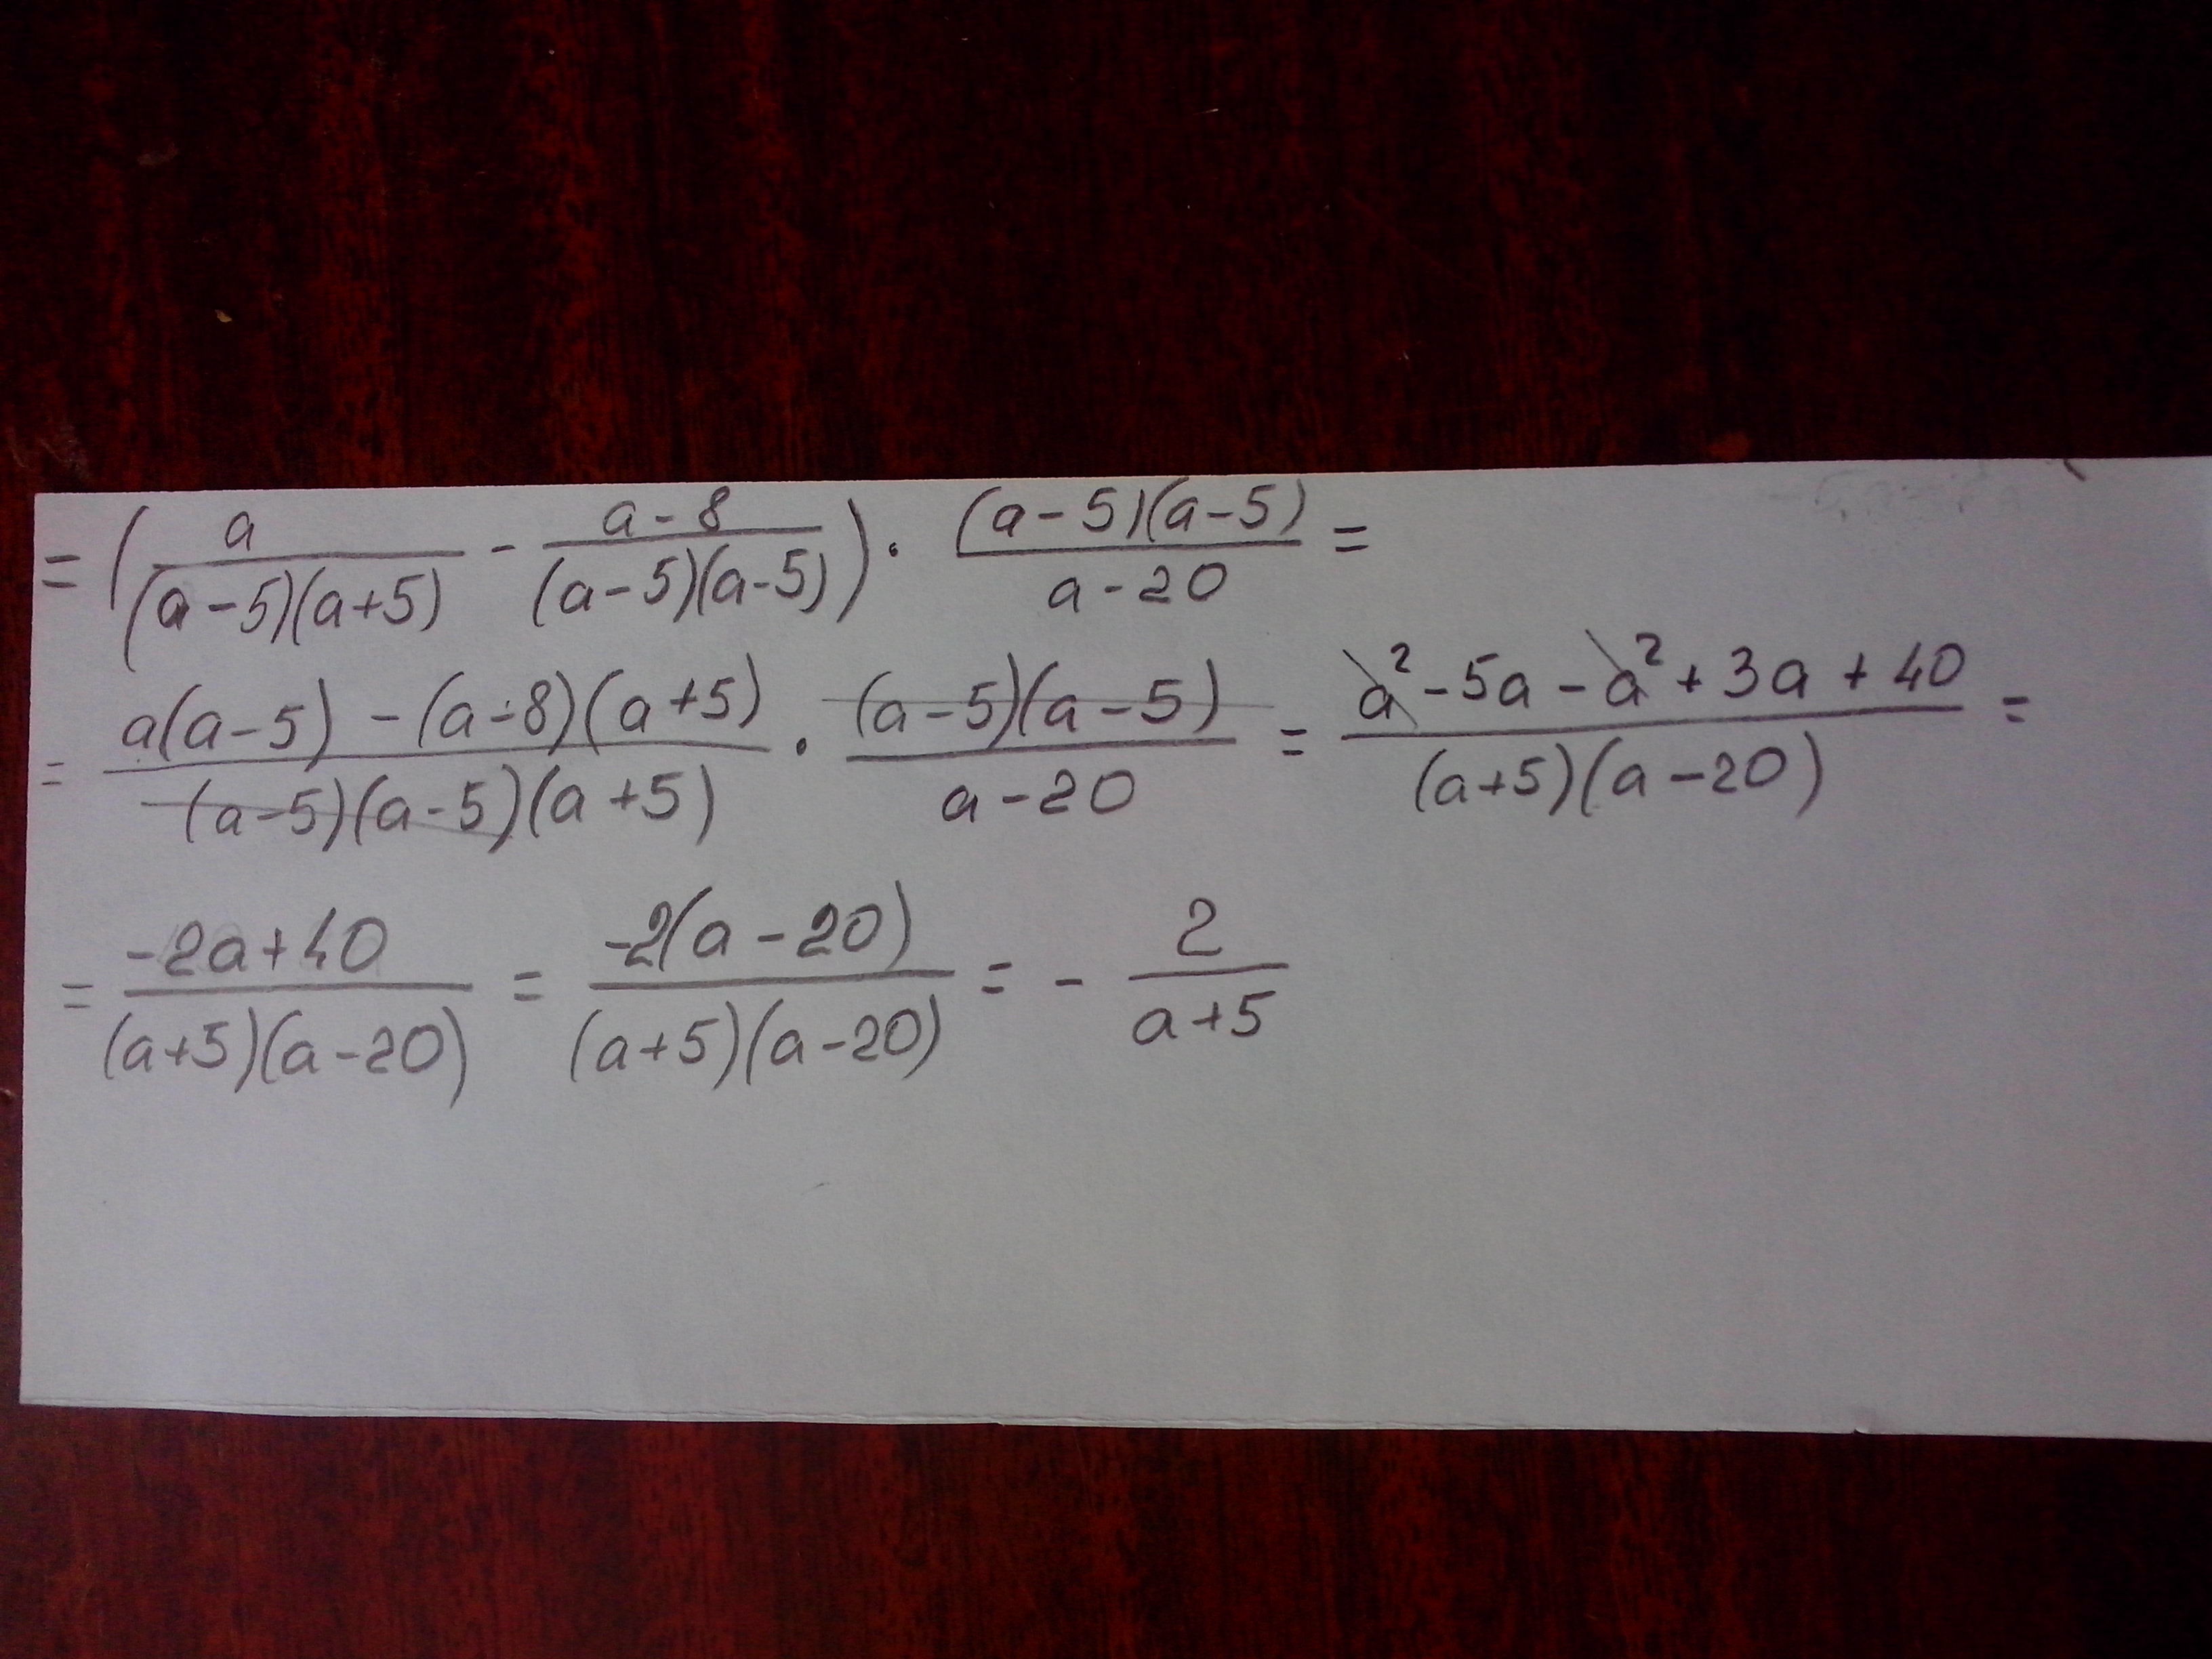 = (a/((a-5)(a+5)) - (a-8)/((a-5)(a-5))) · ((a-5)(a-5))/(a-20) =
= (a(a-5) - (a-8)(a+5))/((a-5)(a-5)(a+5)) · ((a-5)(a-5))/(a-20) = (a² - 5a - a² + 3a + 40)/((a+5)(a-20)) =
= (-2a+40)/((a+5)(a-20)) = (-2(a-20))/((a+5)(a-20)) = - 2/(a+5)